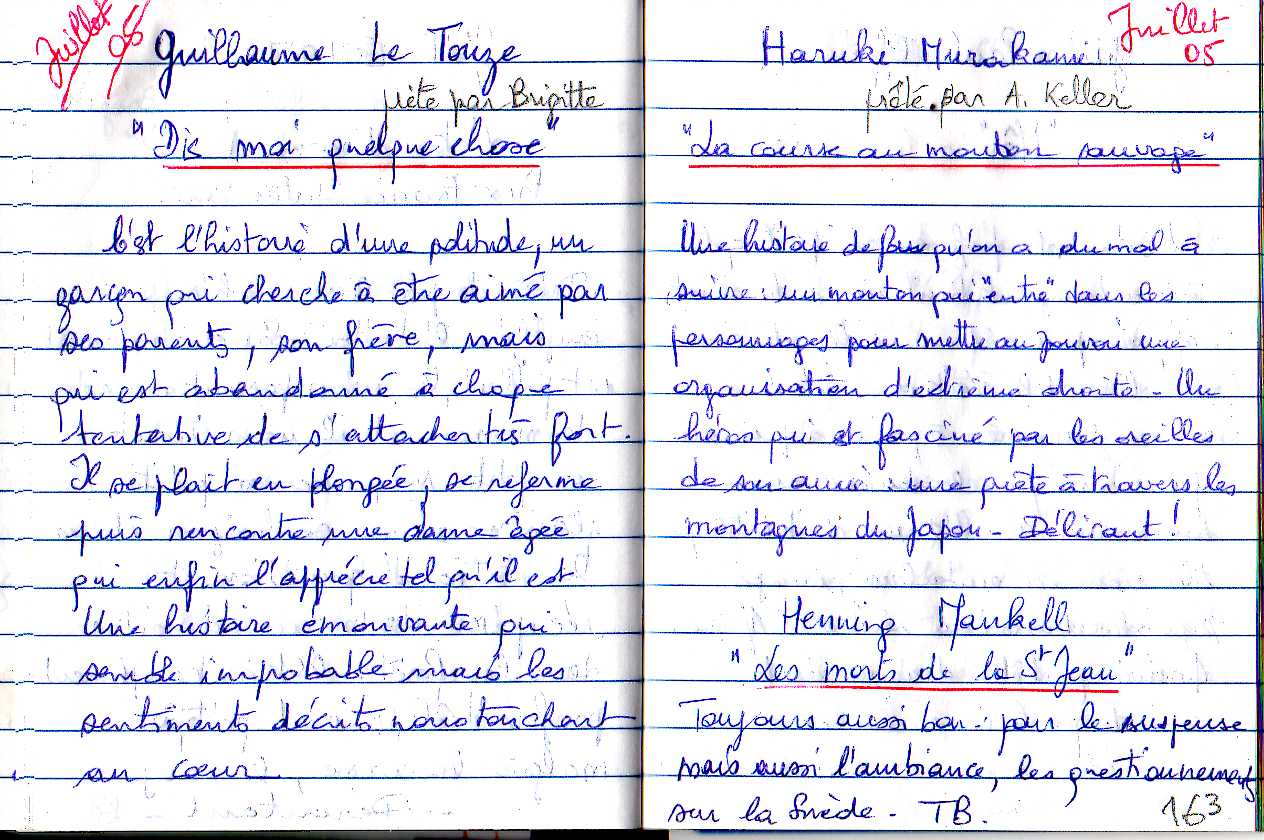 Juillet 05
Guillaume Le Touze
prêté par Brigitte
"Dis moi quelque chose"
C'est l'histoire d'une solitude, un
garçon qui cherche à être aimé par
ses parents, son frère, mais
qui est abandonné à chaque
tentative de s'attacher très fort.
Il se plait en plongée, se referme
puis rencontre une dame âgée
qui enfin l'apprécie tel qu'il est
Une histoire émouvante qui
semble improbable mais les
sentiments décrits nous touchent
au cœur
Juillet 05
Haruki Murakami
prêté par A. Keller
"La course au mouton sauvage"
Une histoire de fous qu'on a du mal à
suivre : un mouton qui "entre" dans les
personnages pour mettre au pouvoir une
organisation d'extrême droite - Un
héros qui est fasciné par les oreilles
de son amie : une quête à travers les
montagnes du Japon - Délirant !
Henning Mankell
"Les morts de la St Jean"
Toujours aussi bon : pour le suspense
mais aussi l'ambiance, les questionnements
sur la Suède - TB.
163